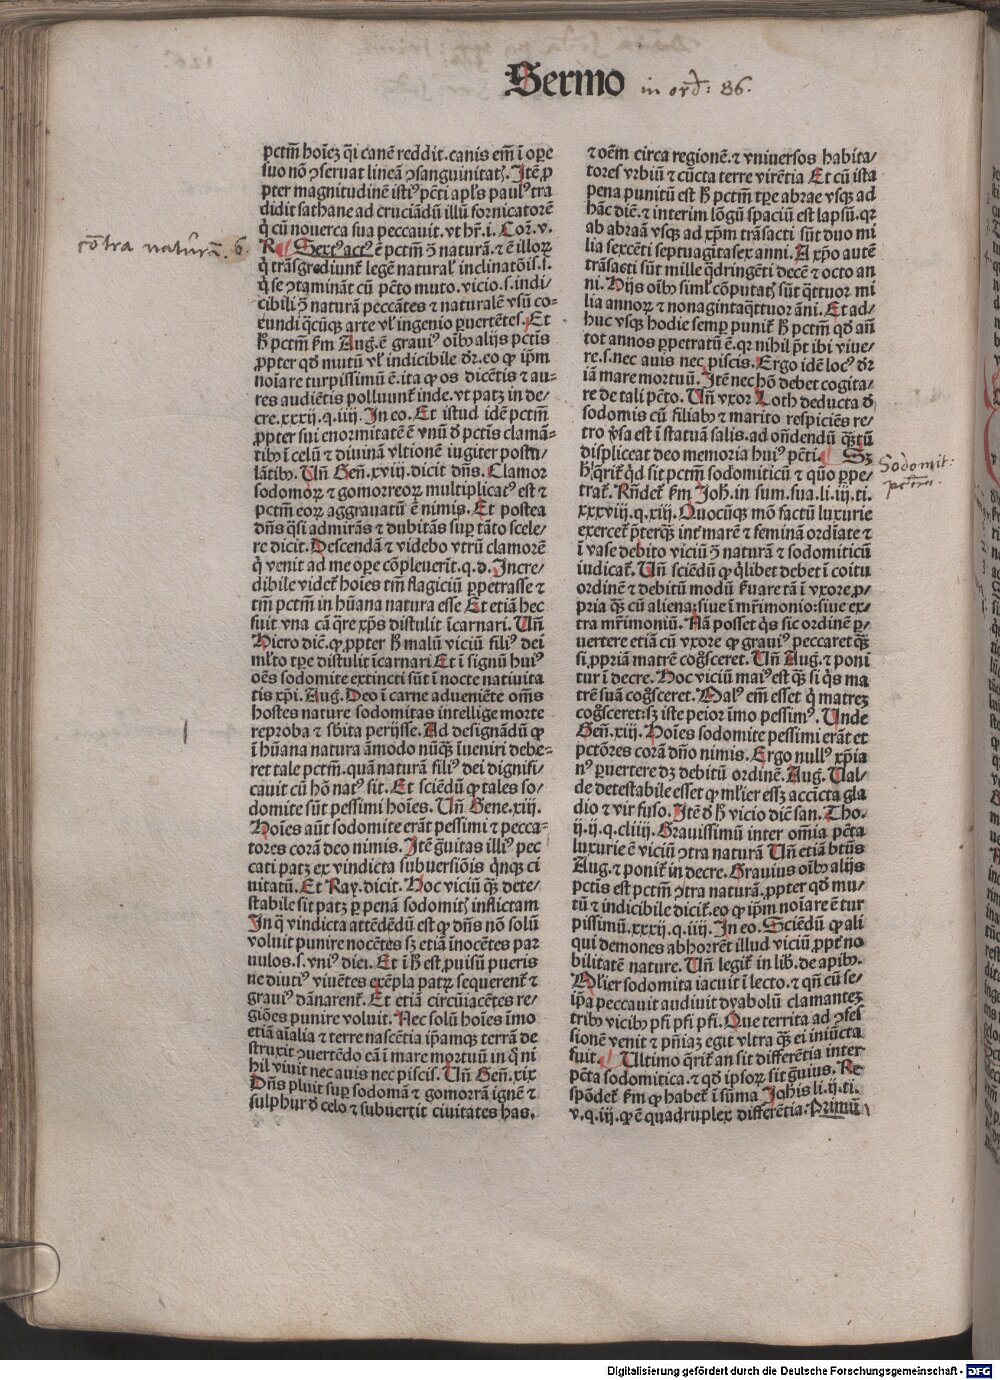 Sermo in ord̄: 86.
pctm̄ hoīeꝫ q̄i canē reddit. canis em̄ ī oꝑe
suo nō ꝯseruat lineā ꝯsanguinitat. Itē ꝓ
pter magnitudinē istiꝰ pcti apls paulꝰ tra
didit sathane ad cruciādū illū fornicatorē
q̄ cū nouerca sua peccauit. vt hr̄. i. Cor. v.
contra naturā. 6.
Sextꝰ actꝰ ē pctm̄ ꝯ naturā. ⁊ ē illoꝝ
q̄ trāsgrediunt̄ legē natural inclinatōis. s.
q̄ se ꝯtamināt cū pcto muto. vicio. s. indi/
cibili ꝯ naturā peccātes ⁊ naturalē vsū co-
eundi q̄cūqꝫ arte vl ingenio ꝑuertētes. Et
h̄ pctm̄ km̄ Aug. ē grauiꝰ oibꝫ alijs pctis
ꝓpter qd̄ mutū vl indicibile dr̄. eo ꝙ ipm̄
noīare turpissimū ē. ita ꝙ os dicētis ⁊ au-
res audiētis polluunt̄ inde. vt patꝫ in de/
cre. xxxij. q. iiij. In eo. Et istud idē pctm̄
ꝓpter sui enormitatē ē vnū d̄ pctis clamā-
tibꝫ ī celū ⁊ diuinā vltionē iugiter postu/
lātibꝫ. Vn̄ Gen̄. xviij. dicit dn̄s. Clamor
sodomoꝝ ⁊ gomorreoꝝ multiplicatꝰ est ⁊
pctm̄ eoꝝ aggrauatū ē nimis. Et postea
dn̄s q̄si admirās ⁊ dubitās suꝑ tāto scele/
re dicit. Descendā ⁊ videbo vtrū clamorē
q̄ venit ad me oꝑe cōpleuerīt. q. d. Incre/
dibile videt̄ hoīes tm̄ flagiciū ꝑpetrasse ⁊
tm̄ pctm̄ in hūana natura esse Et etiā hec
fuit vna cā q̄re xp̄s distulit īcarnari. Vn̄
Hiero dic̄. ꝙ ꝓpter h̄ malū viciū filiꝰ dei
ml̄to tꝑe distulit īcarnari Et ī signū huiꝰ
oēs sodomite extincti sūt ī nocte natiuita
tis xp̄i. Aug. Deo ī carne adueniēte om̄s
hostes nature sodomitas intellige morte
reproba ⁊ sbita perijsse. Ad designādū ꝙ
ī hūana natura āmodo nūqꝫ īueniri debe-
ret tale pctm̄. quā naturā filiꝰ dei dignifi/
cauit cū hō natꝰ sit. Et sciēdū ꝙ tales so/
domite sūt pessimi hoīes. Vn̄ Gene. xiij.
Hoīes aūt sodomite erāt pessimi ⁊ pecca-
tores corā deo nimis. Itē g̃uitas illiꝰ pec
cati patꝫ ex vindicta subuersiōis q̄nqꝫ ci
uitatū. Et Ray. dicit. Hoc viciū qꝫ dete/
stabile sit patꝫ ꝑ penā sodomit inflictam
In q̄ vindicta attēdēdū est ꝙ dn̄s nō solū
voluit punire nocētes sꝫ etiā īnocētes par
uulos. s. vniꝰ diei. Et ī h̄ est ꝓuisū pueris
ne diutiꝰ viuētes exēpla patꝝ sequerent̄ ⁊
grauiꝰ dānarent̄. Et etiā circūiacētes re/
giōes punire voluit. Nec solū hoīes īmo
etiā aīalia ⁊ terre nascētia ipamqꝫ terrā de
struxit ꝯuertēdo eā ī mare mortuū in q̄ ni
hil viuit nec auis nec piscis. Vn̄ Gen̄. xix
Dn̄s pluit suꝑ sodomā ⁊ gomorrā ignē ⁊
sulphur d̄ celo ⁊ subuertit ciuitates has.
⁊ oēm circa regionē. ⁊ vniuersos habita/
tores vrbiū ⁊ cūcta terre virētia Et cū ista
pena punitū est h̄ pctm̄ tꝑe abrae vsqꝫ ad
hāc diē. ⁊ interim lōgū spaciū est lapsū. qꝛ
ab abraā vsqꝫ ad xp̄m trāsacti sūt duo mi
lia sexcēti septuagitasex anni. A xp̄o autē
trāsacti sūt mille q̄dringēti decē ⁊ octo an
ni. Hijs oibꝫ siml̄ cōputat sūt q̄ttuor mi
lia annoꝝ ⁊ nonagintaq̄ttuor āni. Et ad/
huc vsqꝫ hodie semꝑ punit̄ h̄ pctm̄ qd̄ an̄
tot annos ꝑpetratū ē. qꝛ nihil pt̄ ibi viue/
re. s. nec auis nec piscis. Ergo idē locꝰ dr̄
iā mare mortuū. Itē nec hō debet cogita/
re de tali pcto. Vn̄ vxor Loth deducta d̄
sodomis cū filiabꝫ ⁊ marito respiciēs re/
tro v̄sa est ī statuā salis. ad on̄dendū qꝫtū
displiceat deo memoria huiꝰ pcti. Sꝫ
Sodomit:
pctm̄.
h̄ q̄rit̄ qd̄ sit pctm̄ sodomiticū ⁊ quō ꝑpe/
trat̄. Rn̄det̄ km̄ Joh. in sum. sua. li. iij. ti.
xxxviij. q. xiij. Quocūqꝫ mō factū luxurie
exercet̄ p̄terqꝫ int̄ marē ⁊ feminā ordīate ⁊
ī vase debito viciū ꝯ naturā ⁊ sodomiticū
iudicat̄. Vn̄ sciēdū ꝙ q̄libet debet ī coitu
ordinē ⁊ debitū modū k̄uare tā ī vxore ꝓ/
pria qꝫ cū aliena: siue ī mr̄imonio: siue ex/
tra mr̄imoniū. Nā posset q̄s sic ordinē ꝑ/
uertere etiā cū vxore ꝙ grauiꝰ peccaret qꝫ
si ꝓpriā matrē cog̃sceret. Vn̄ Aug. ⁊ poni
tur ī decre. Hoc viciū maiꝰ est qꝫ si q̄s ma
trē suā cog̃sceret. Malꝰ em̄ esset q̄ matreꝫ
cog̃sceret: sꝫ iste peior īmo pessimꝰ. Vnde
Gen̄. xiij. Hoīes sodomite pessimi erāt et
pctōres corā dn̄o nimis. Ergo nullꝰ xp̄ia
nꝰ ꝑuertere dꝫ debitū ordinē. Aug. Val/
de detestabile esset ꝙ ml̄ier essꝫ accīcta gla
dio ⁊ vir fuso. Itē d̄ h̄ vicio dic̄ san. Tho.
ij. ij. q. cliiij. Grauissimū inter om̄ia pcta
luxurie ē viciū ꝯtra naturā Vn̄ etiā btūs
Aug. ⁊ ponit̄ in decre. Grauius oibꝫ alijs
pctis est pctm̄ ꝯtra naturā. ꝓpter qd̄ mu/
tū ⁊ indicibile dicit̄. eo ꝙ ipm̄ noīare ē tur
pissimū. xxxij. q. iiij. In eo. Sciēdū ꝙ ali
qui demones abhorrēt illud viciū. ꝓpt̄ no
bilitatē nature. Vn̄ legit̄ in lib. de apibꝫ.
Mlier sodomita iacuit ī lecto. ⁊ qn̄ cū se/
ip̄a peccauit audiuit dyabolū clamanteꝫ
tribꝫ vicibꝫ pfi pfi pfi. Que territa ad ꝯfes
sionē venit ⁊ pn̄iaꝫ egit vltra qꝫ ei iniūcta
fuit. Vltimo q̄rit̄ an sit differētia inter
pcta sodomitica. ⁊ qd̄ ipsoꝝ sit g̃uius. Re
spōdet̄ km̄ ꝙ habet̄ ī sūma Johis li. ij. ti.
v. q. iij. ꝙ ē quadruplex differētia. Primū
Digitalisierung gefördert durch die Deutsche Forschungsgemeinschaft - DFG